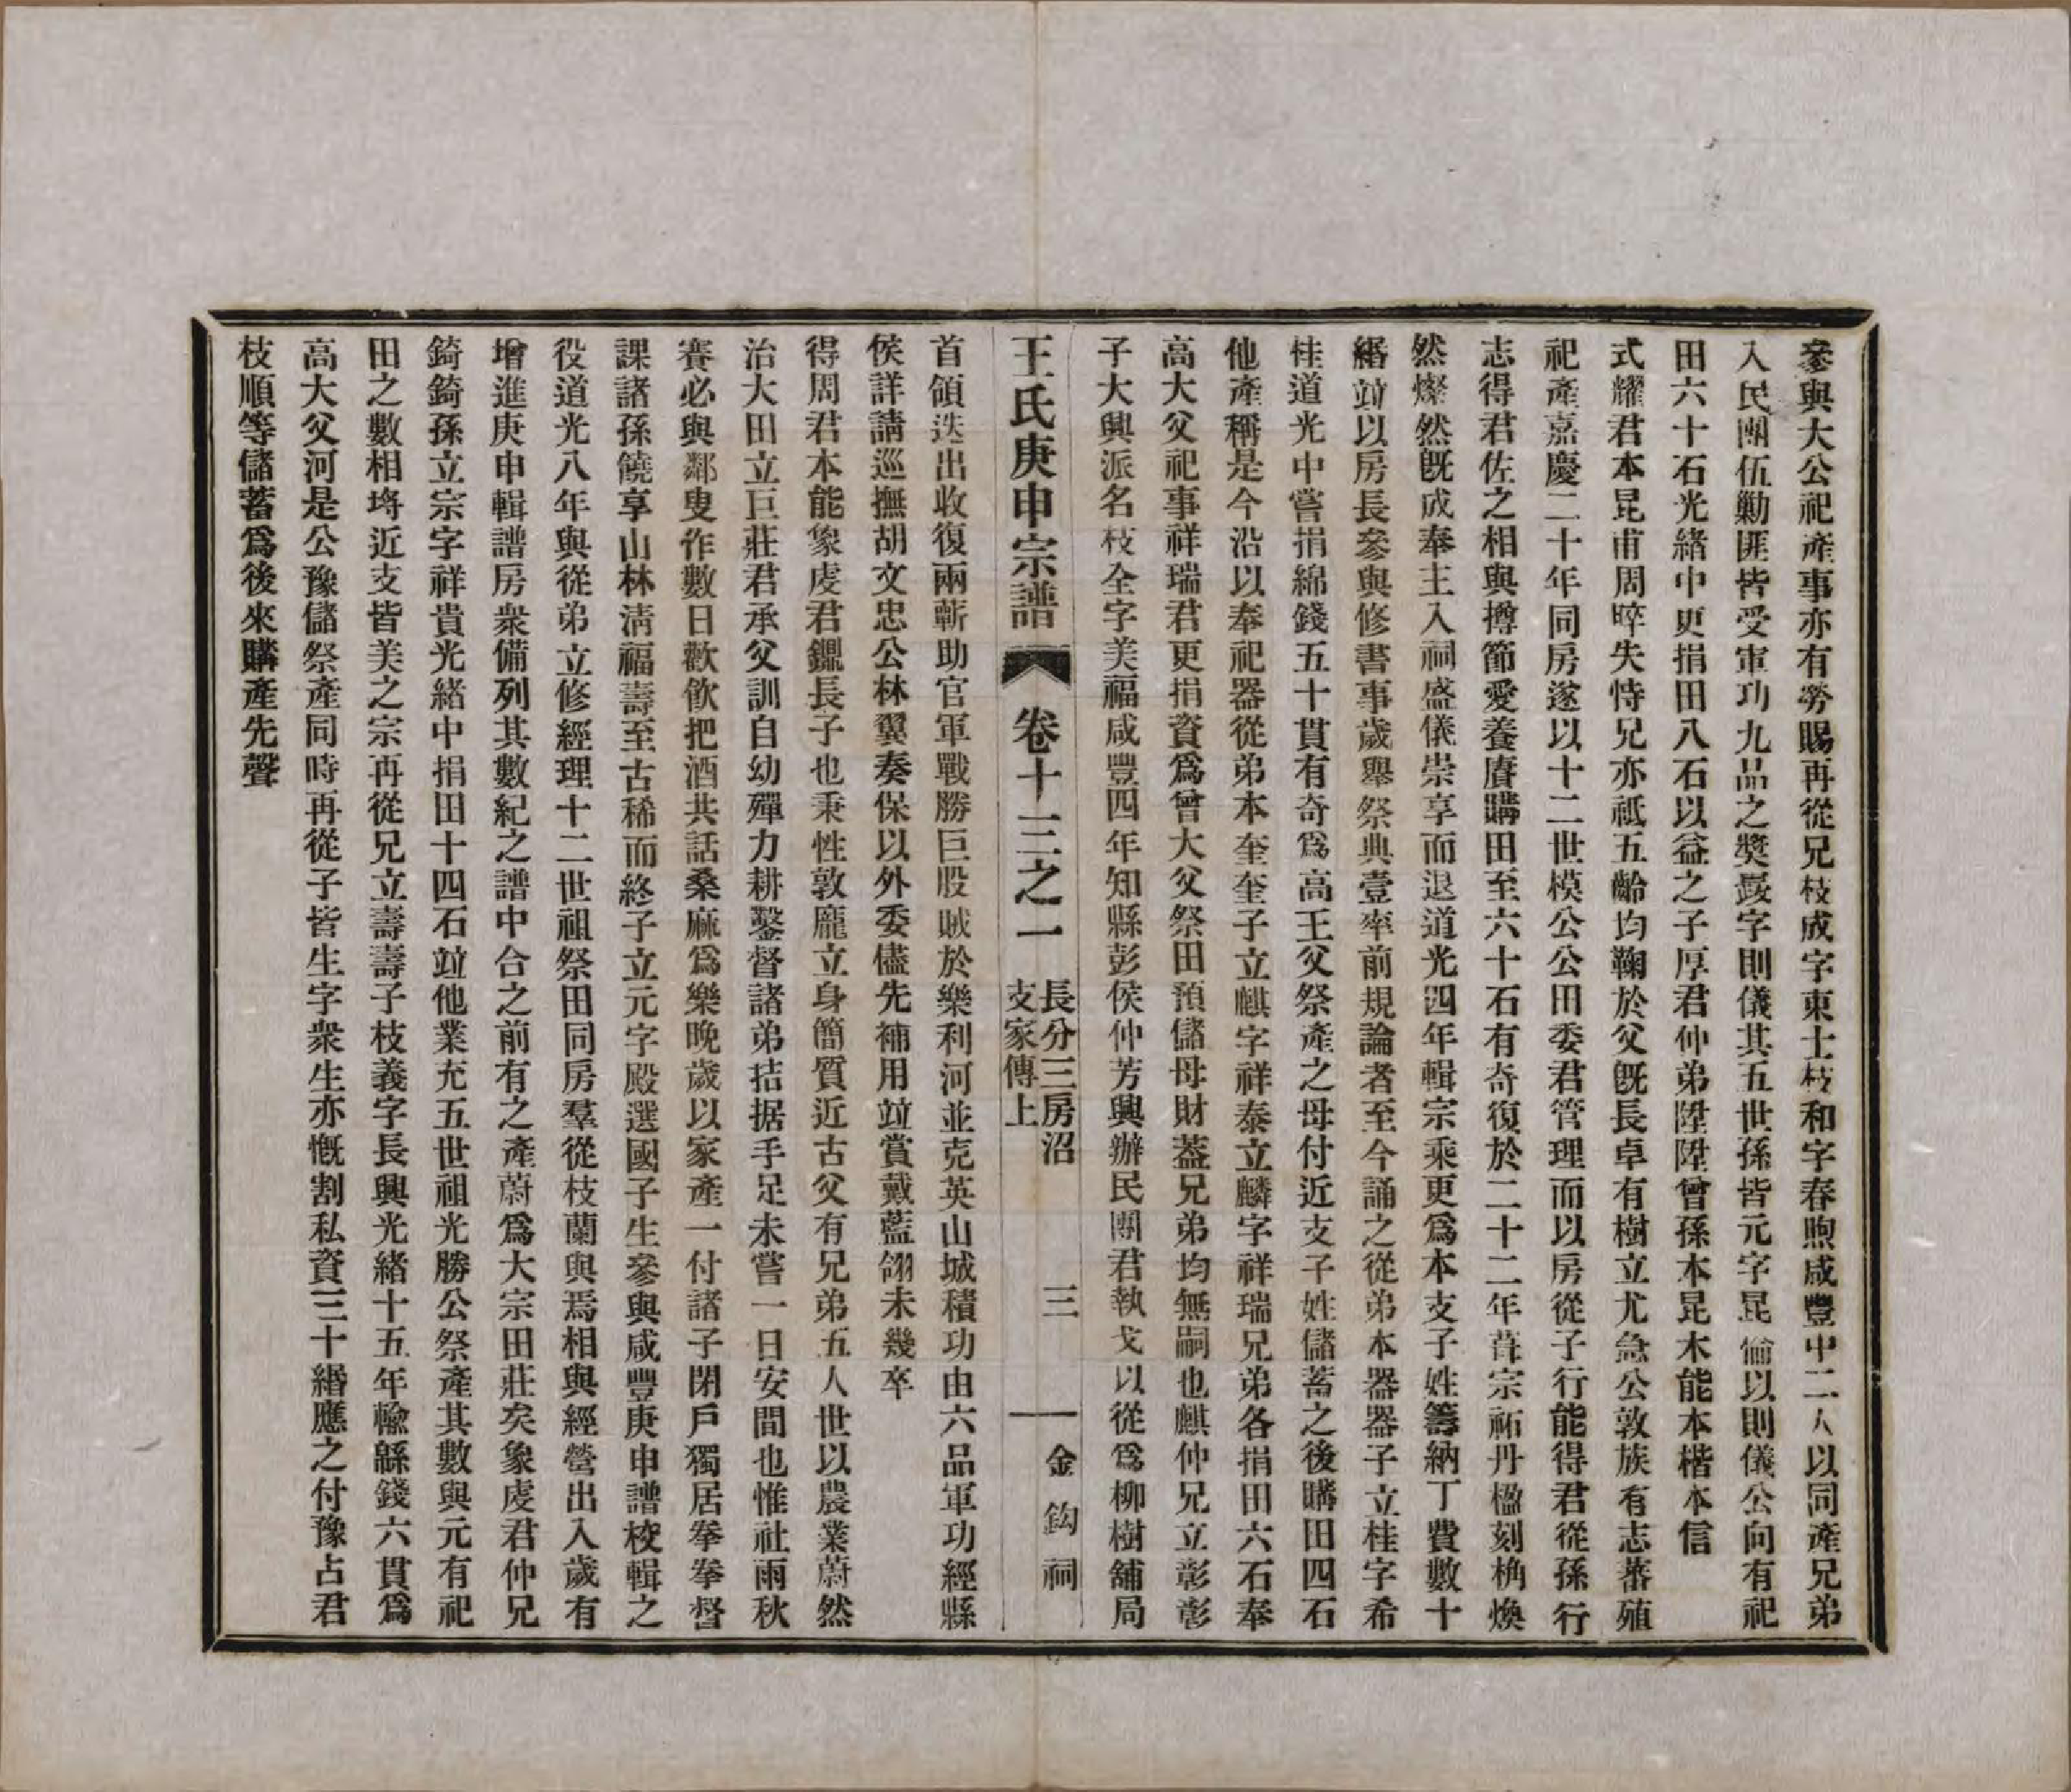 參與大公祀產事亦有勞賜再從兄枝成字東士枝和字春煦咸豐中二人以同產兄弟
入民團伍勦匪皆受軍功九品之獎錽字則儀其五世孫皆元字昆倫以則儀公向有祀
田六十石光緒中更捐田八石以益之子厚君仲弟陞陞曾孫本昆本能本楷本信
式耀君本昆甫周晬失恃兄亦祗五齡均鞠於父既長卓有樹立尤急公敦族有志蕃殖
祀產嘉慶二十年同房遂以十二世模公公田委君管理而以房從子行能得君從孫行
志得君佐之相與撙節愛養賡購田至六十石有奇復於二十二年葺宗祏丹楹刻桷煥
然燦然既成奉主入祠盛儀崇享而退道光四年輯宗乘更為本支子姓籌納丁費數十
緡竝以房長參與修書事歲舉祭典壹率前規論者至今誦之從弟本器器子立桂字希
桂道光中嘗捐綿錢五十貫有奇爲高王父祭產之母付近支子姓儲蓄之後購田四石
他產稱是今沿以奉祀器從弟本奎奎子立麒字祥泰立麟字祥瑞兄弟各捐田六石奉
高大父祀事祥瑞君更捐資爲曾大父祭田預儲母財蓋兄弟均無嗣也麒仲兄立彰彰
子大興派名枝全字美福咸豐四年知縣彭侯仲芳興辦民團君執戈以從爲柳樹舖局
王氏庚申宗譜　卷十三之一　長分三房沼支家傳上　三　金鈎祠
首領迭出收復兩蘄助官軍戰勝巨股賊於樂利河並克英山城積功由六品軍功經縣
侯詳請巡撫胡文忠公林翼奏保以外委儘先補用竝賞戴藍翎未幾卒
得周君本能象虔君鑃長子也秉性敦龐立身簡質近古父有兄弟五人世以農業蔚然
治大田立巨莊君承父訓自幼殫力耕鑿督諸弟拮据手足未嘗一日安閒也惟社雨秋
賽必與鄰叟作數日歡飲把酒共話桑麻爲樂晚歲以家產一付諸子閉戶獨居拳拳督
課諸孫饒享山林淸福壽至古稀而終子立元字殿選國子生參與咸豐庚申譜校輯之
役道光八年與從弟立修經理十二世祖祭田同房羣從枝蘭與焉相與經營出入歲有
增進庚申輯譜房衆備列其數紀之譜中合之前有之產蔚爲大宗田莊矣象虔君仲兄
錡錡孫立宗字祥貴光緒中捐田十四石竝他業充五世祖光勝公祭產其數與元有祀
田之數相埒近支皆美之宗再從兄立壽壽子枝義字長興光緒十五年輸緜錢六貫爲
高大父河是公豫儲祭產同時再從子皆生字衆生亦慨割私資三十緡應之付豫占君
枝順等儲蓄爲後來購產先聲